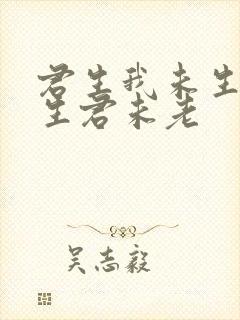 君生我未生
生君未老
吴志毅